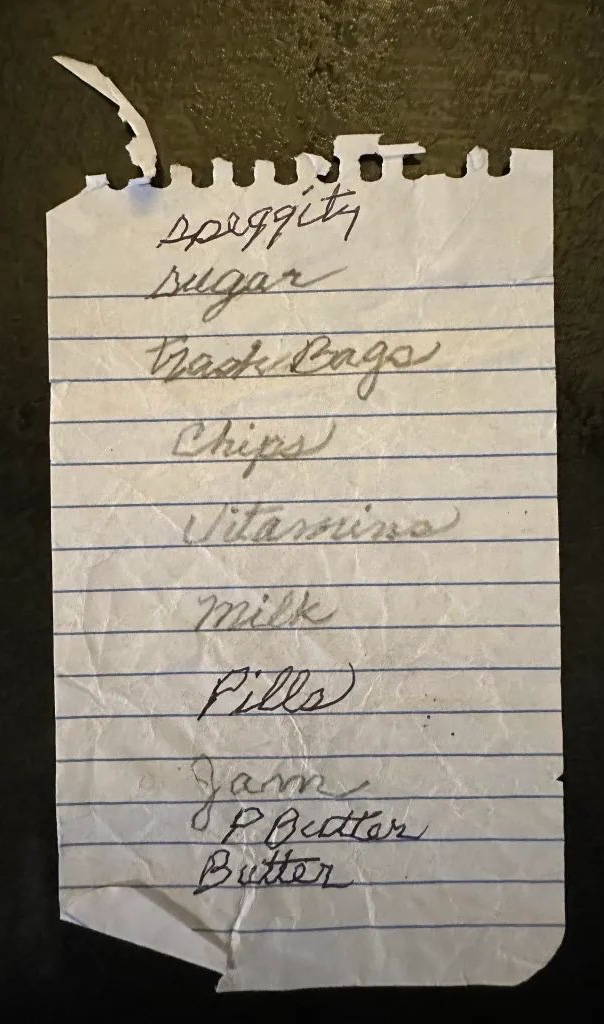 speggity
sugar
Trash Bags
Chips
Vitamins
Milk
Pills
Jam
P Butter
Butter